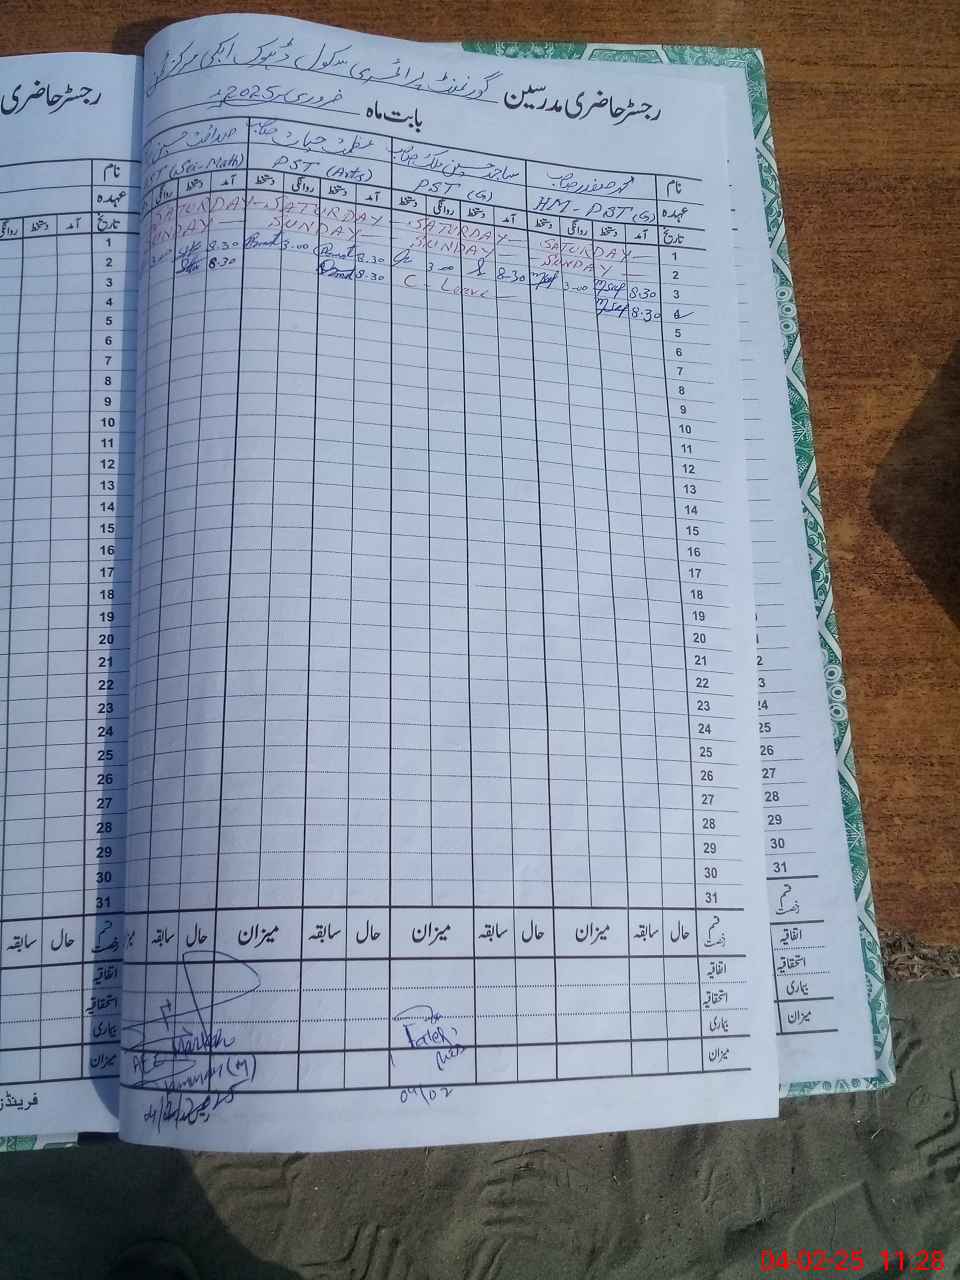 رجسٹر حاضری مدرسین گورنمنٹ پرائمری سکول ڈہوک
بابت ماہ فروری 2025ء
نام
عہدہ HM-PST(G) PST (G) PST (Arts) PST (Sci-Math)
تاریخ آمد دستخط روانگی دستخط آمد دستخط روانگی دستخط آمد دستخط روانگی دستخط آمد دستخط روانگی
1 SATURDAY SATURDAY SATURDAY SATURDAY
2 SUNDAY SUNDAY SUNDAY SUNDAY
3 8.30 3.00 8.30 3.00 8.30 3.00 8.30 3.00
4 8.30 C-Leave 8.30 8.30
5
6
7
8
9
10
11
12
13
14
15
16
17
18
19
20
21
22
23
24
25
26
27
28
29
30
31
قسم رخصت حال سابقہ میزان حال سابقہ میزان حال سابقہ میزان حال سابقہ
اتفاقیہ
استحقاقیہ
بیماری
میزان
04/02
AEE
(M)
رجسٹر حاضری
نام
عہدہ
تاریخ آمد دستخط روانگی
1
2
3
4
5
6
7
8
9
10
11
12
13
14
15
16
17
18
19
20
21
22
23
24
25
26
27
28
29
30
31
قسم رخصت حال سابقہ
اتفاقیہ
استحقاقیہ
بیماری
میزان
فرینڈز
25
26
27
28
29
30
31
قسم رخصت
اتفاقیہ
استحقاقیہ
بیماری
میزان
04-02-25 11:28